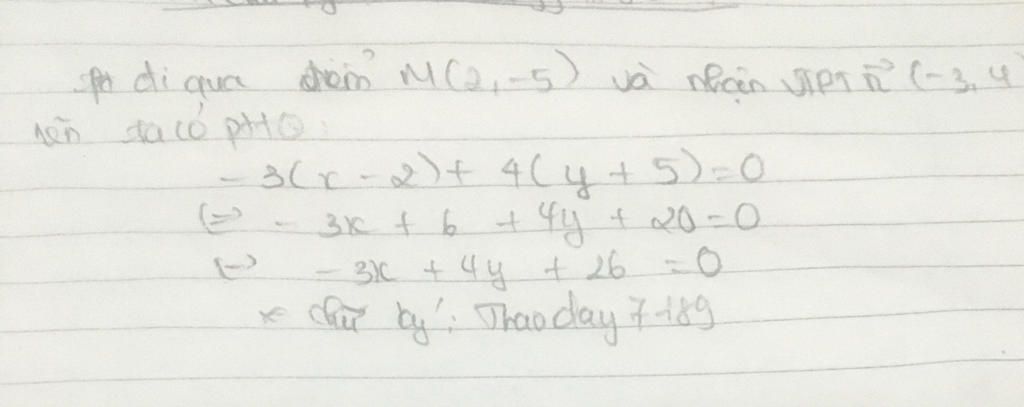 đi qua điểm M(2,-5) và nhận VTPT n⃗ (-3,4
nên ta có ptTQ:
-3(x-2)+ 4(y+5)=0
(=> - 3x + 6 + 4y + 20=0
(=> -3x + 4y + 26 =0
* chữ ký: Thaoday7189